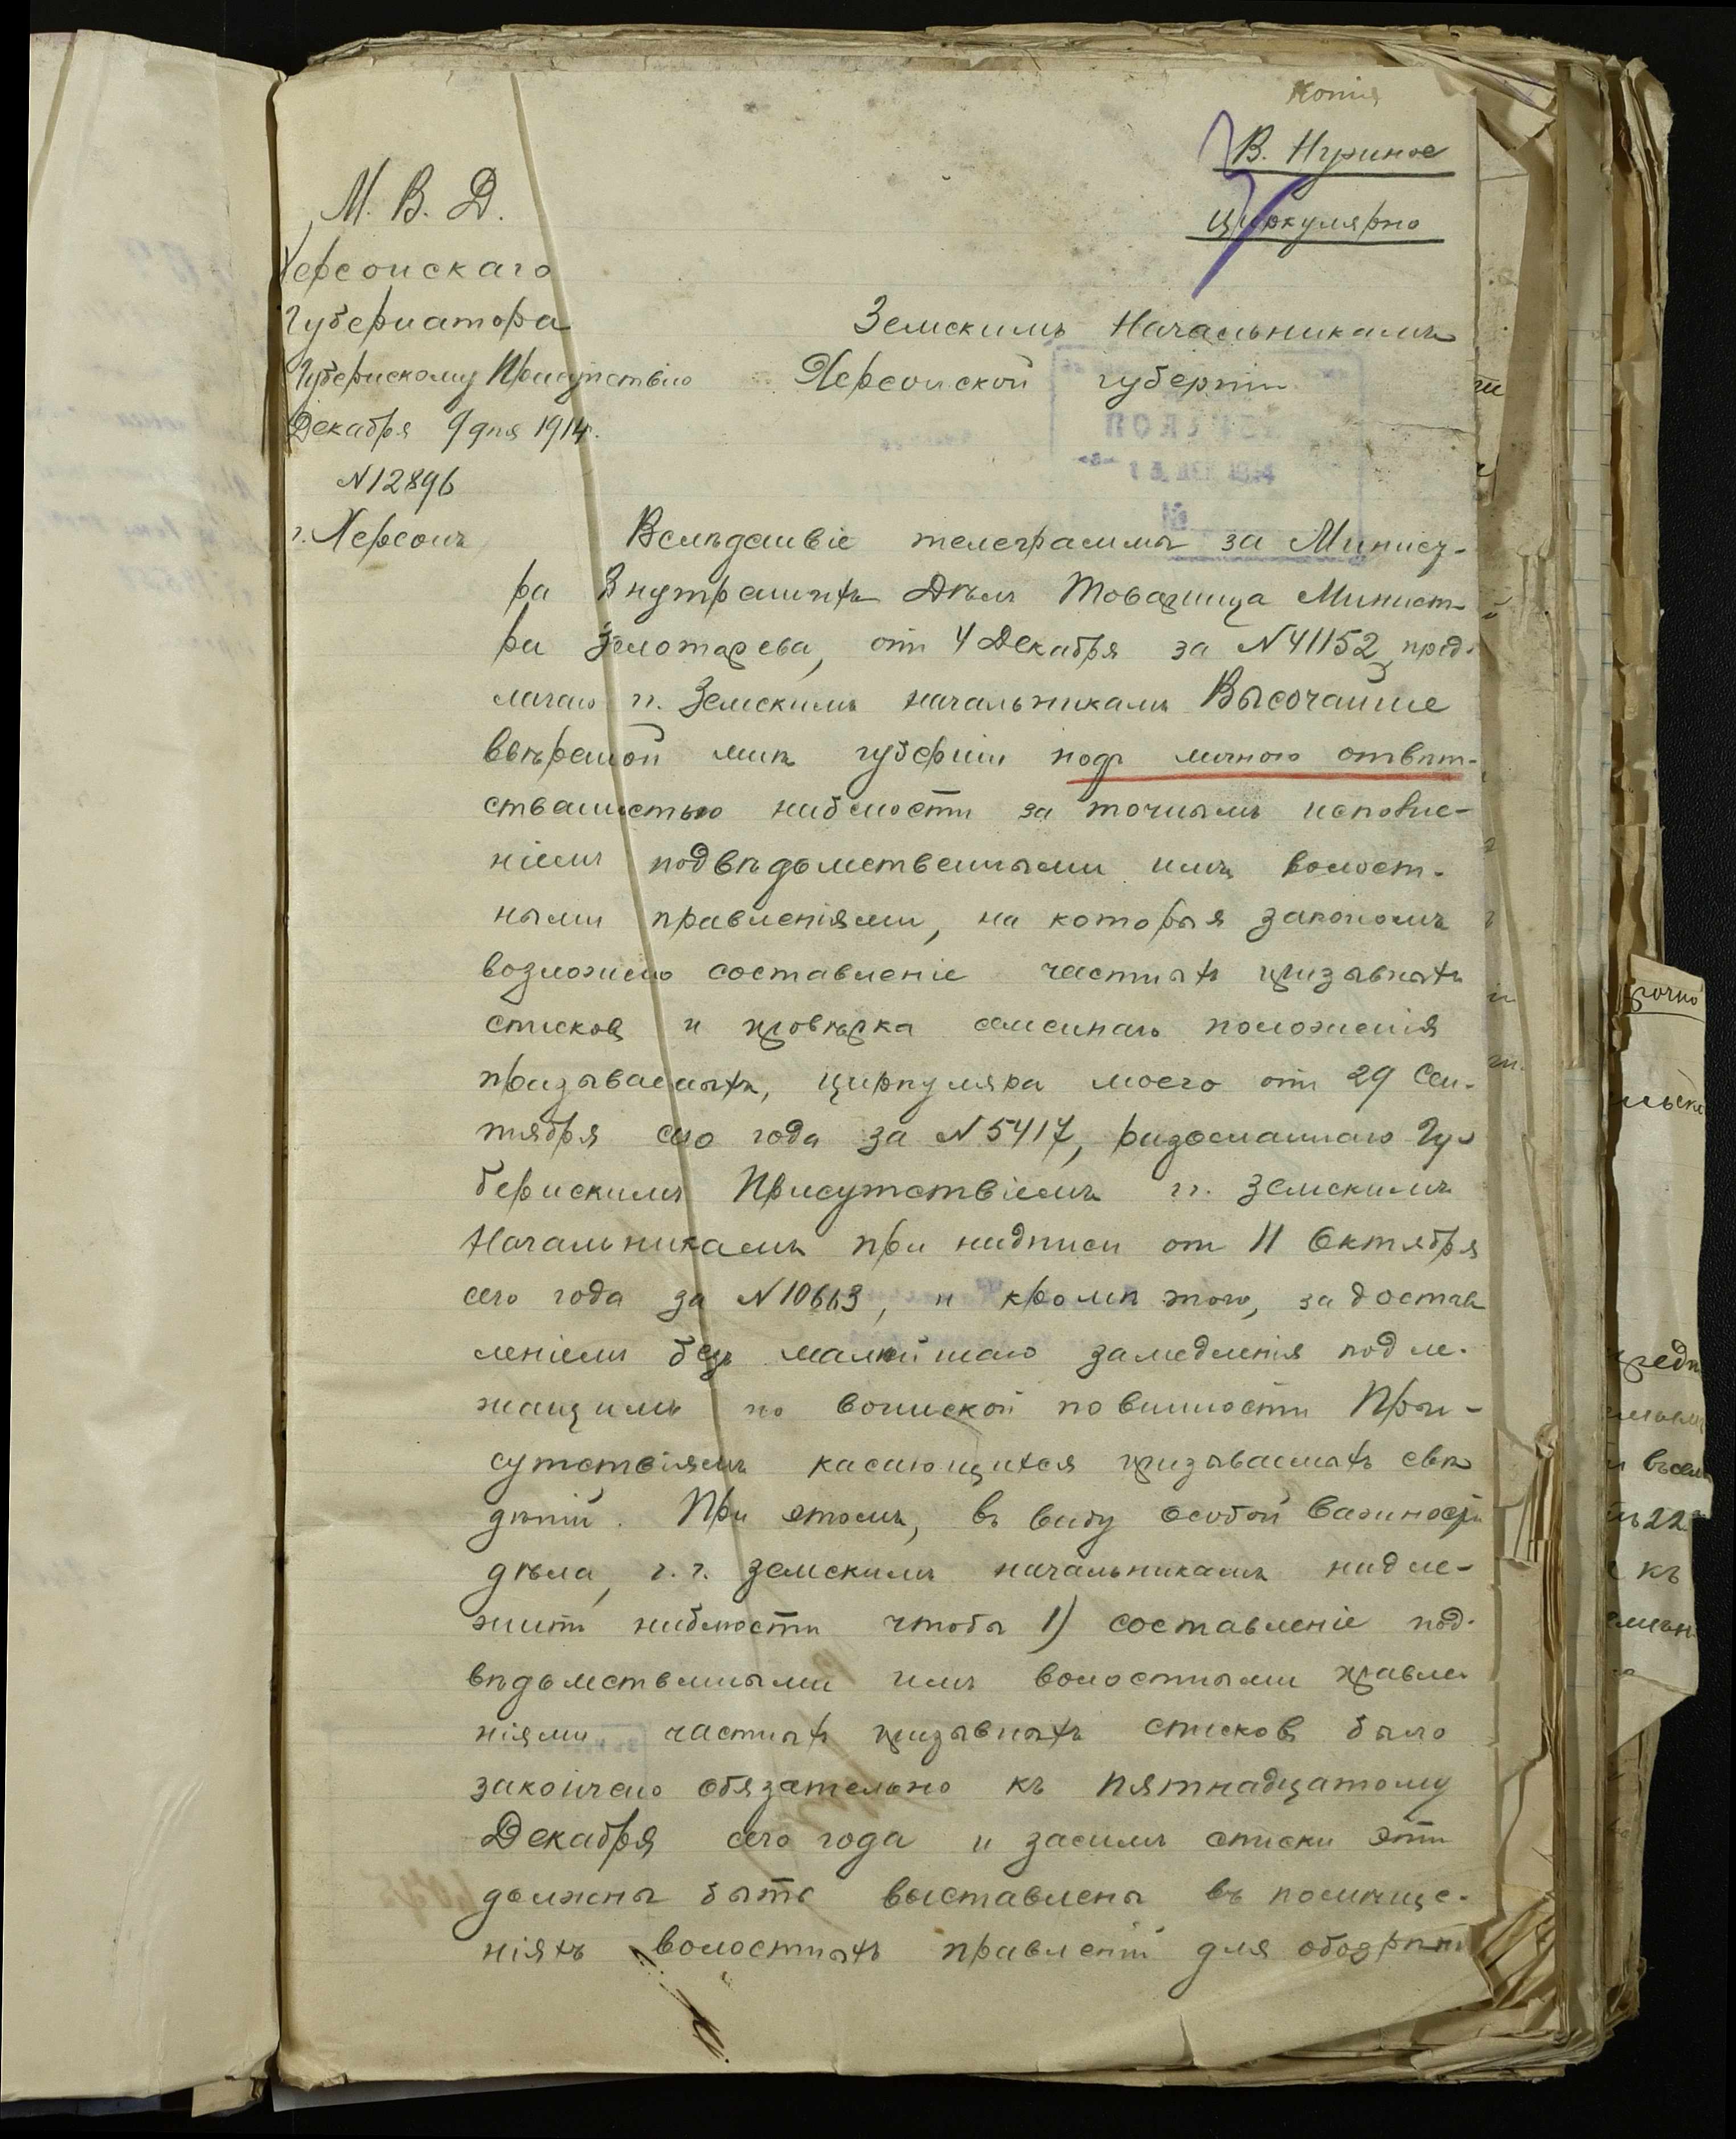 Копія
В. Нужное
Циркулярно
М. В. Д.
Херсонскаго
Губернатора
Губернскому Присутствію
Декабря 9 дня 1914 г.
N 12896
г. Херсонъ
Земскимъ Начальникамъ
Херсонской губерніи
Вслѣдствіе телеграммы за Минист-
ра Внутреннихъ Дѣлъ Товарища Минист-
ра Золотарева, отъ 4 Декабря за N 41152, пред-
лагаю гг. Земскимъ начальникамъ Высочайше
ввѣренной мнѣ губерніи подъ личною отвѣт-
ственностью наблюсти за точнымъ исполне-
ніемъ подвѣдомственными имъ волост-
ными правленіями, на которыя закономъ
возложено составленіе частныхъ призывныхъ
списковъ и провѣрка семейнаго положенія
призываемыхъ, циркуляра моего отъ 29 Сен-
тября сего года за N 5417, разосланнаго Гу-
бернскимъ Присутствіемъ гг. Земскимъ
Начальникамъ при надписи от 11 Октября
сего года за N 10663, и кромѣ того, за достав
леніемъ безъ малѣйшаго замедленія подле-
жащимъ по воинской повинности При-
сутствіямъ касающихся призываемыхъ свѣ
дѣній. При этомъ, въ виду особой важности
дѣла, г.г. земскимъ начальникамъ надле-
житъ наблюсти чтобы 1) составленіе под-
вѣдомственными имъ волостными правле-
ніями частныхъ призывныхъ списковъ было
закончено обязательно къ пятнадцатому
Декабря сего года и засимъ списки эти
должны быть выставлены въ помѣще-
ніяхъ волостныхъ правленій для обозрѣнія